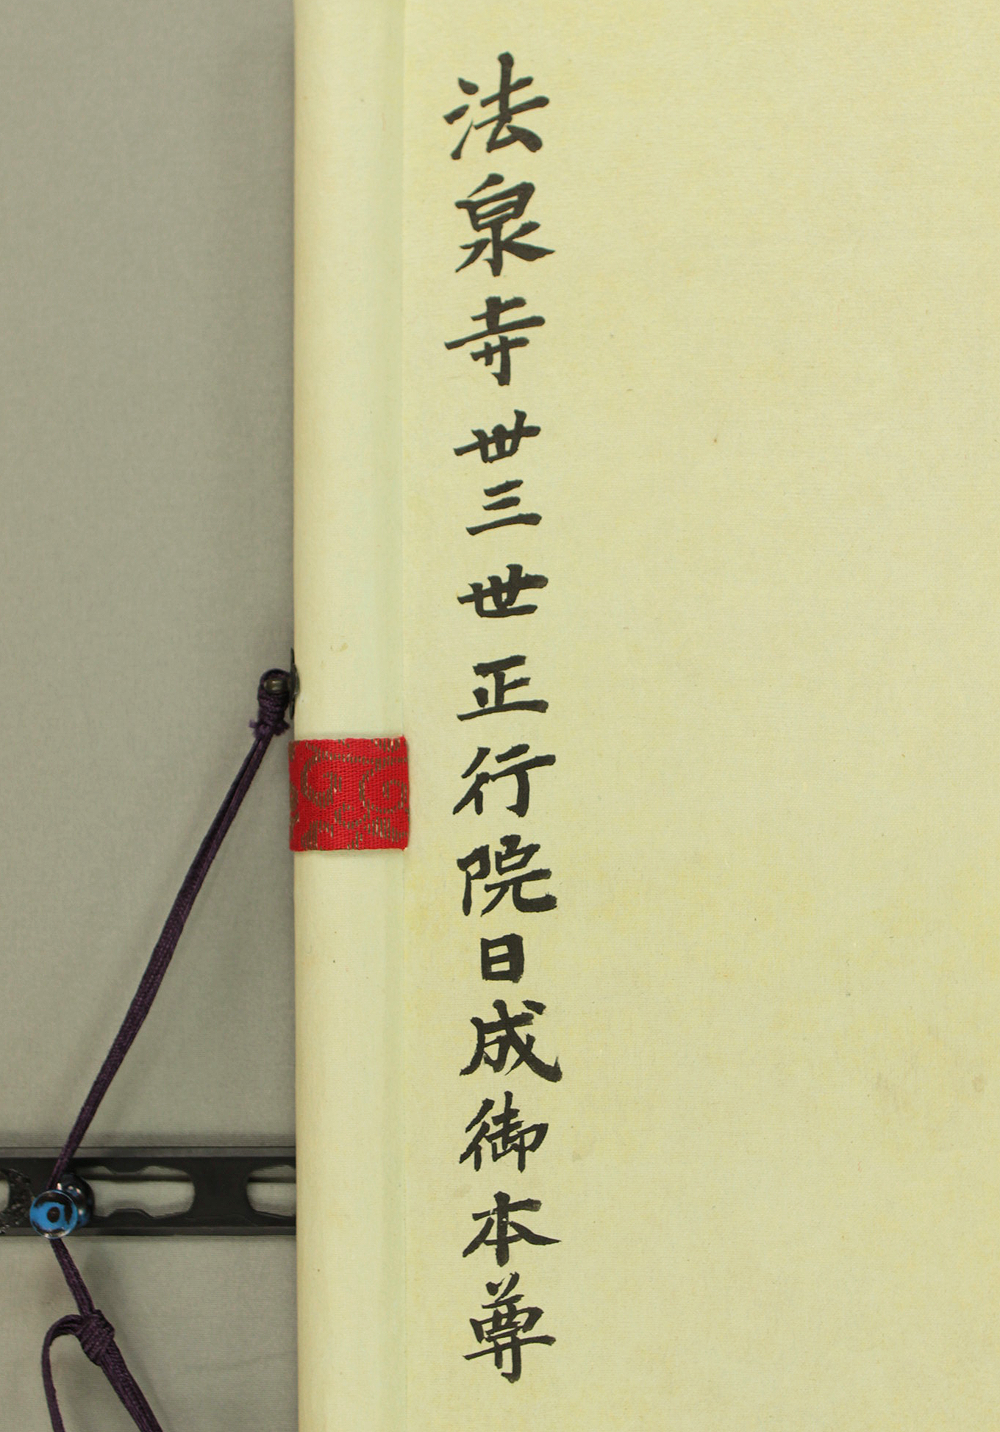 法泉寺丗三世正行院日成御本尊